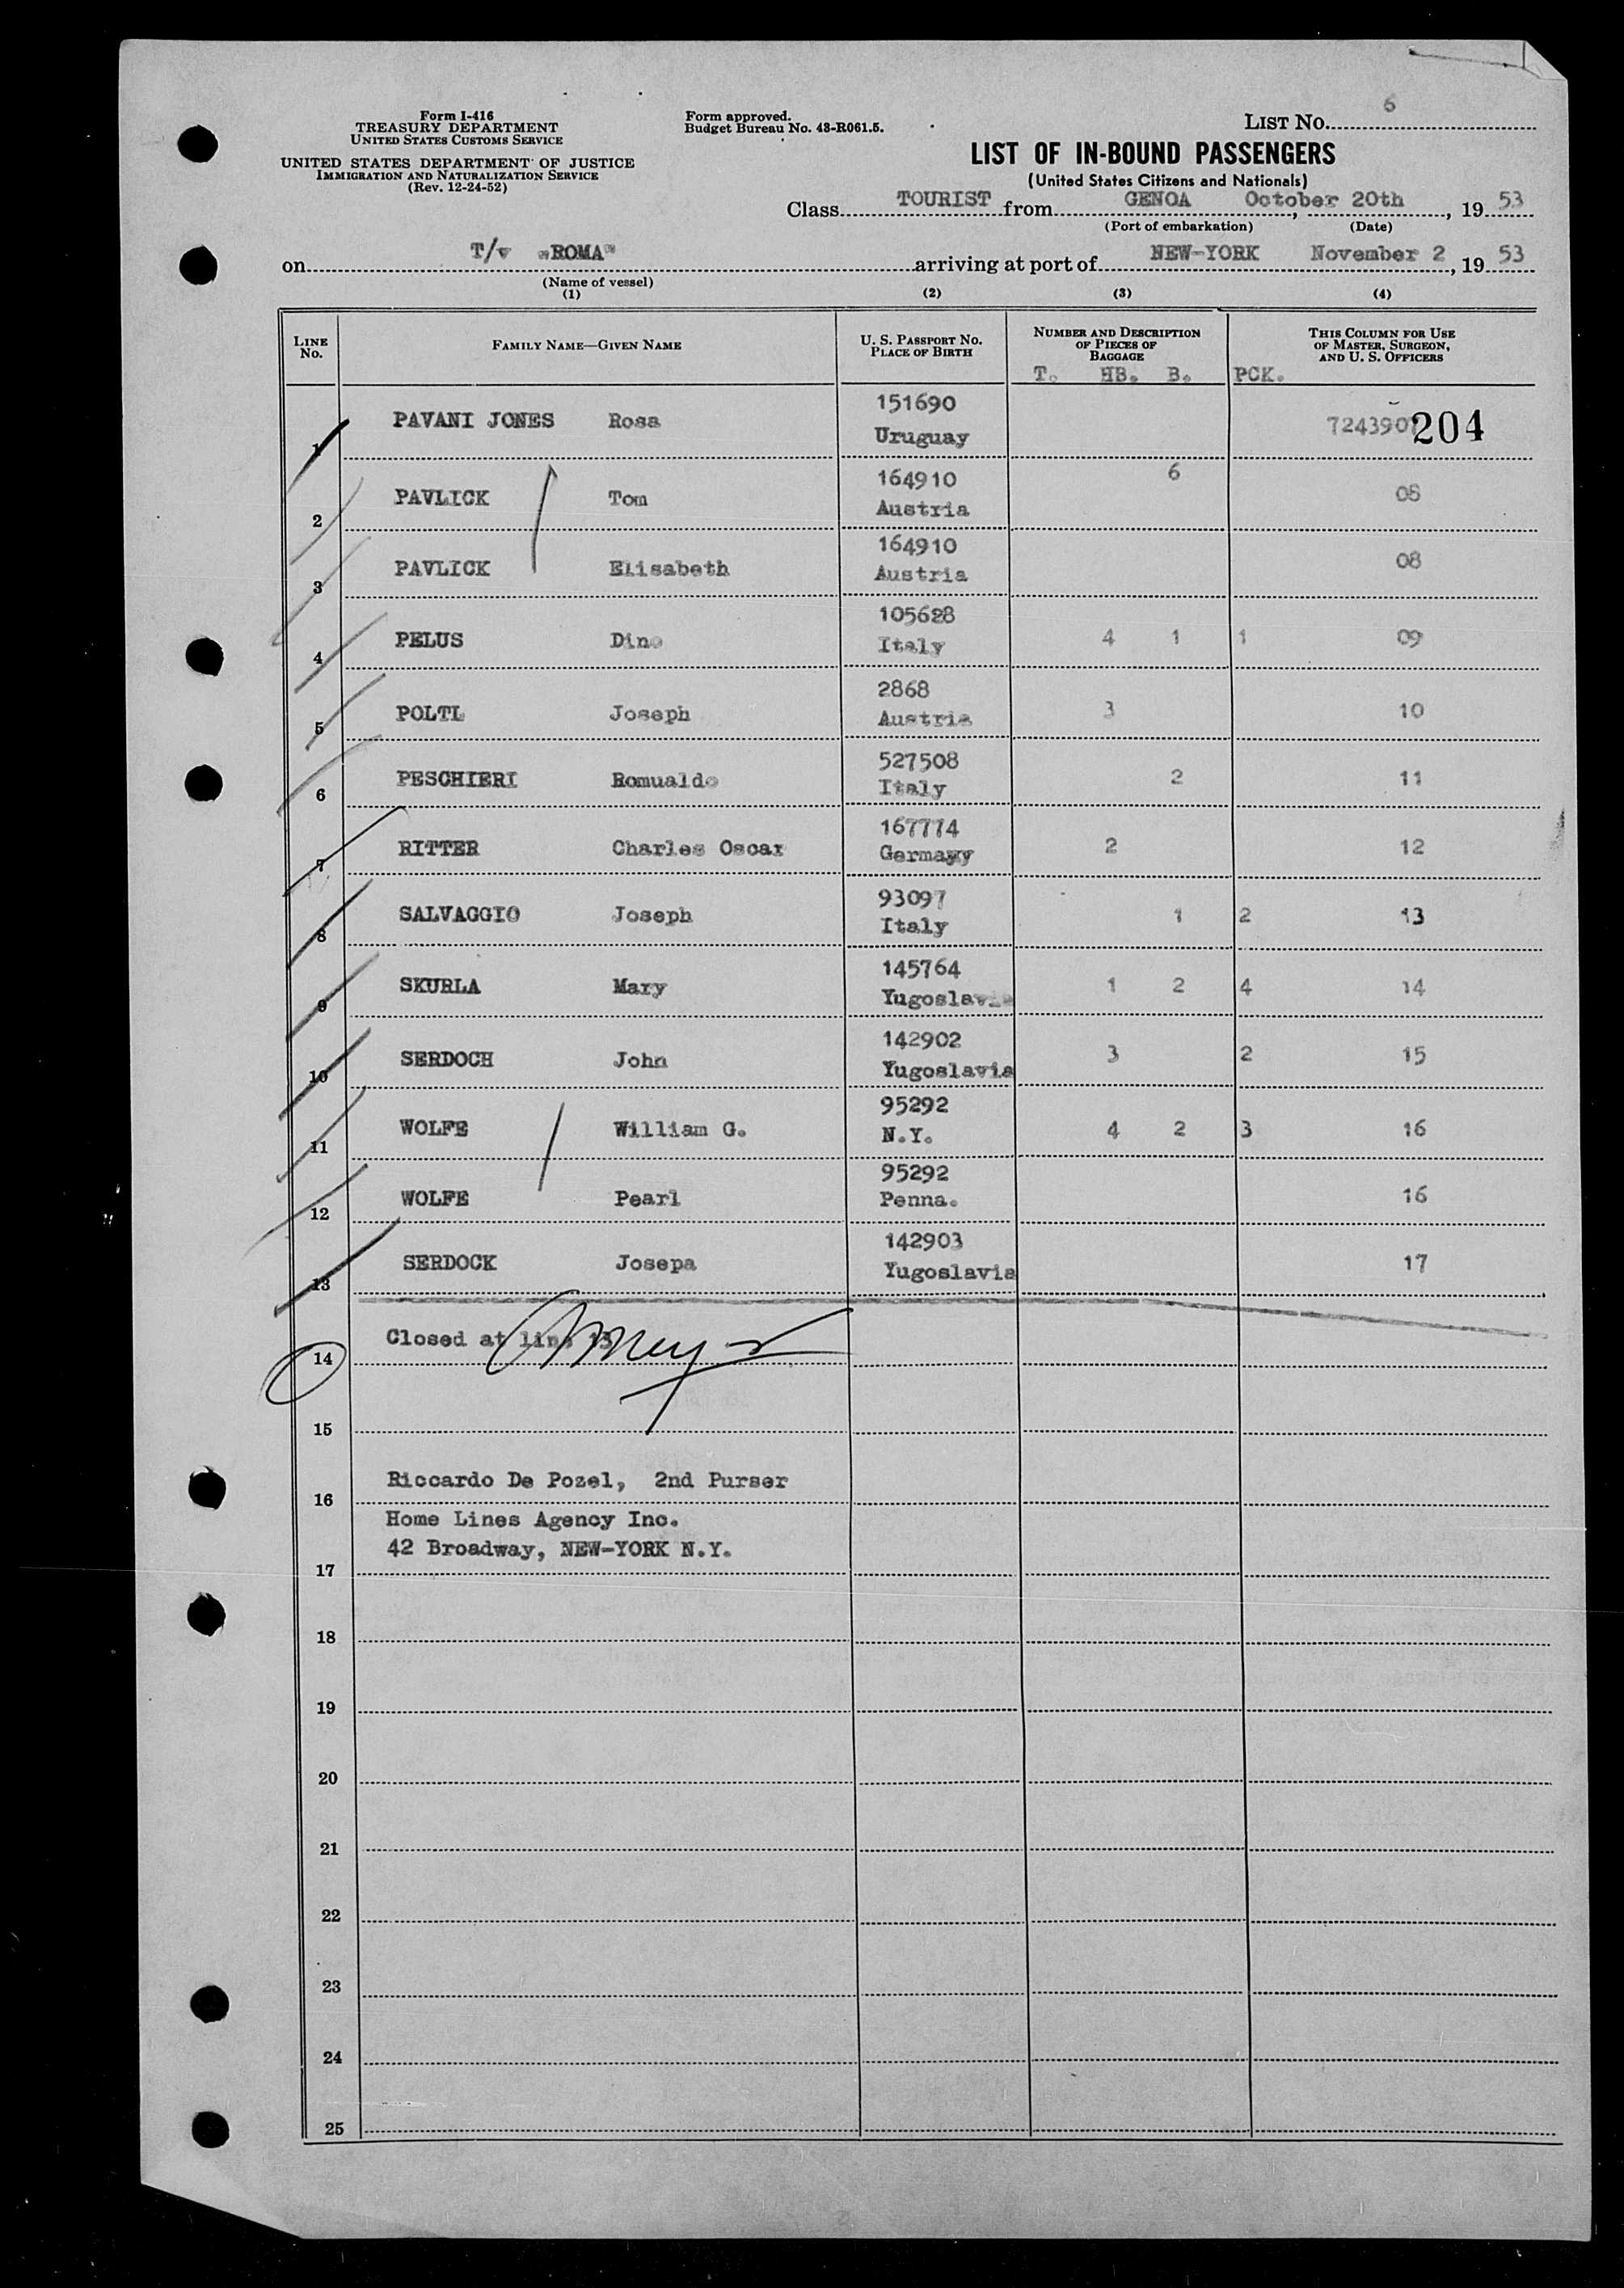 6
LIST No.
Form I-416
TREASURY DEPARTMENT
UNITED STATES CUSTOMS SERVICE
UNITED STATES DEPARTMENT OF JUSTICE
IMMIGRATION AND NATURALIZATION SERVICE
(Rev. 12-24-52)
Form approved.
Budget Bureau No. 43-R061.5.
LIST OF IN-BOUND PASSENGERS
(United States Citizens and Nationals)
Class TOURIST from GENOA, October 20th, 19 53
(Port of embarkation) (Date)
on T/v "ROMA" arriving at port of NEW-YORK November 2, 19 53
(Name of vessel)
(1) (2) (3) (4)
LINE No. FAMILY NAME—GIVEN NAME U. S. PASSPORT NO. PLACE OF BIRTH NUMBER AND DESCRIPTION OF PIECES OF BAGGAGE THIS COLUMN FOR USE OF MASTER, SURGEON, AND U. S. OFFICERS
T. HB. B. PCK.
1 PAVANI JONES Rosa 151690 Uruguay 7243907 204
2 PAVLICK Tom 164910 Austria 6 08
3 PAVLICK Elisabeth 164910 Austria 08
4 PELUS Dino 105628 Italy 4 1 1 09
5 POLTL Joseph 2868 Austria 3 10
6 PESCHIERI Romualdo 527508 Italy 2 11
7 RITTER Charles Oscar 167774 Germany 2 12
8 SALVAGGIO Joseph 93097 Italy 1 2 13
9 SKURLA Mary 145764 Yugoslavia 1 2 4 14
10 SERDOCH John 142902 Yugoslavia 3 2 15
11 WOLFE William G. 95292 N.Y. 4 2 3 16
12 WOLFE Pearl 95292 Penna. 16
13 SERDOCK Josepa 142903 Yugoslavia 17
14 Closed at line 13
15
16 Riccardo De Pozel, 2nd Purser
Home Lines Agency Inc.
17 42 Broadway, NEW-YORK N.Y.
18
19
20
21
22
23
24
25